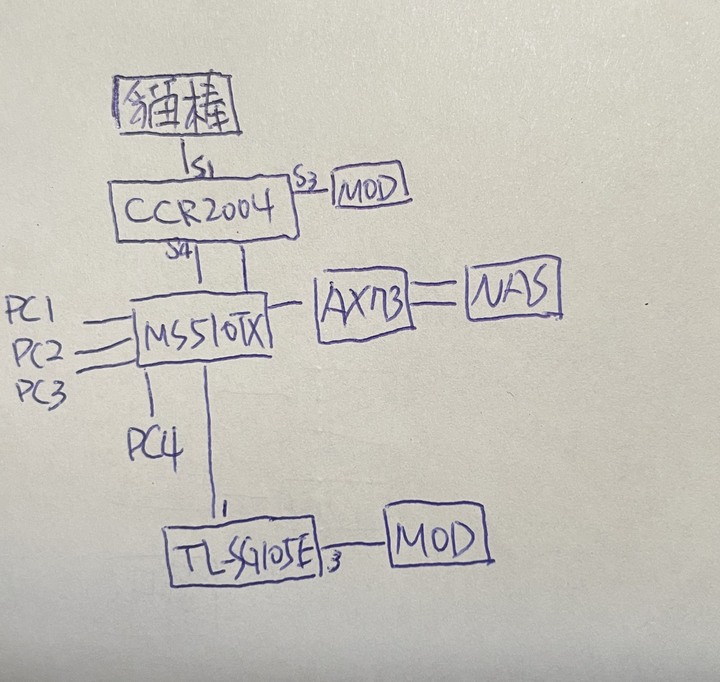 貓棒
S1
CCR2004
S3
MOD
S4
PC1
PC2
PC3
MS510TX
AX73
NAS
PC4
1
TL-SG105E
3
MOD